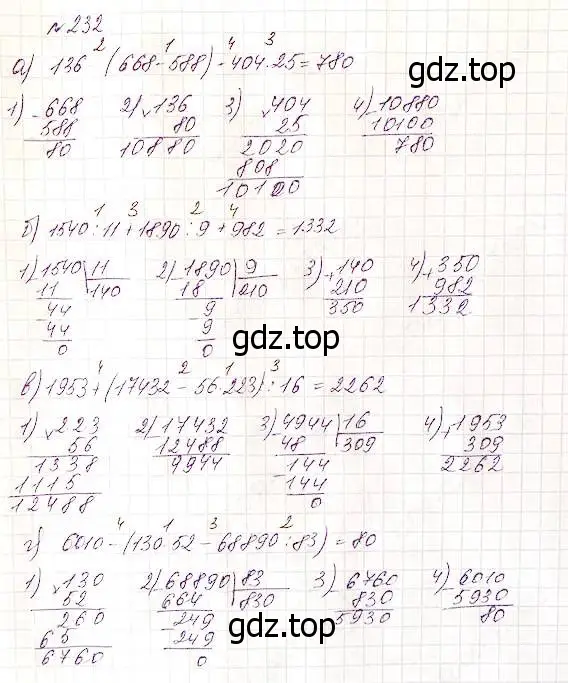 №232
2 1 4 3
а) 136 (668-588)-404·25=780
1) -668 2) ×136 3) ×404 4) -10880
588 80 25 10100
80 10880 2020 780
808
10100
gdz.top
1 3 2 4
б) 1540:11+1890:9+982=1332
1) 1540|11 2) 1890|9 3) +140 4) +350
11 140 18 210 210 982
44 9 350 1332
44 9
0 0
gdz.top
4 2 1 3
в) 1953+(17432-56·223):16=2262
1) ×223 2) -17432 3) 4944|16 4) +1953
56 12488 48 309 309
1338 9944 144 2262
1115 144
12488 0
4 1 3 2
г) 6010-(130·52-68890:83)=80
1) ×130 2) 68890|83 3) -6760 4) -6010
52 664 830 830 5930
260 249 5930 80
65 249
6760 0
gdz.top